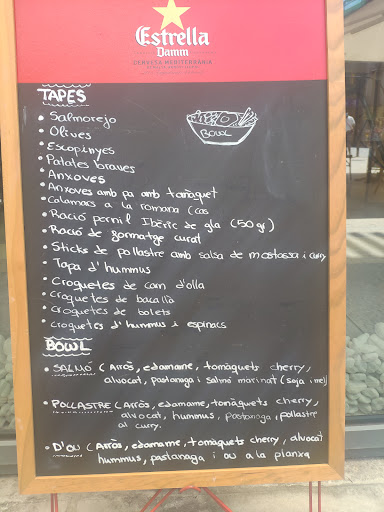 Estrella
Damm
CERVESA MEDITERRÀNIA
TAPES
• Salmorejo
• Olives
• Escopinyes
• Patates braves
• Anxoves
• Anxoves amb pa amb tomàquet
• Calamars a la romana (cas
• Ració pernil Ibèric de gla (50gr)
• Ració de formatge curat
• Sticks de pollastre amb salsa de mostassa i curry
• Tapa d'hummus
• Croquetes de carn d'olla
• Croquetes de bacallà
• Croquetes de bolets
• Croquetes d'hummus i espinacs
BOWL
BOWL
• SALMÓ (Arròs, edamame, tomàquets cherry,
alvocat, pastanaga i salmó marinat (soja i mel)
• POLLASTRE (Arròs, edamame, tomàquets cherry,
alvocat, hummus, pastanaga, pollastre
al curry.
• D'OU (Arròs, edamame, tomàquets cherry, alvocat
hummus, pastanaga i ou a la planxa